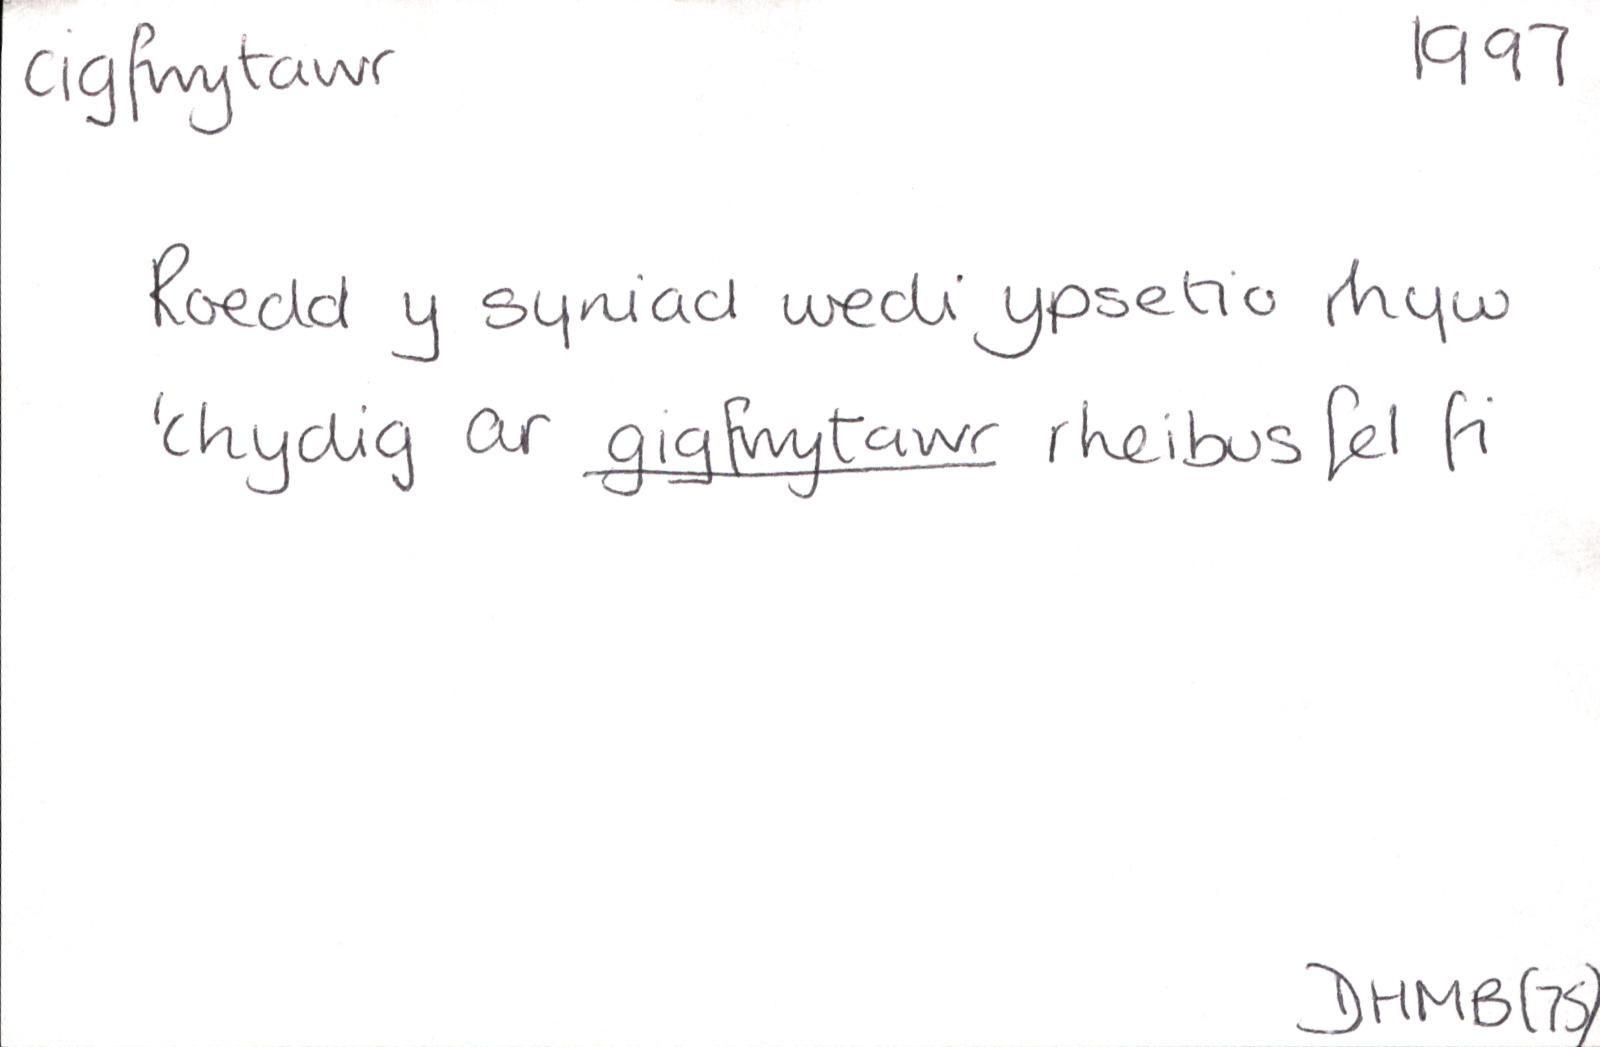 cigfwytawr 1997
Roedd y syniad wedi ypsetio rhyw
'chydig ar gigfwytawr rheibus fel fi
DHMB(75)